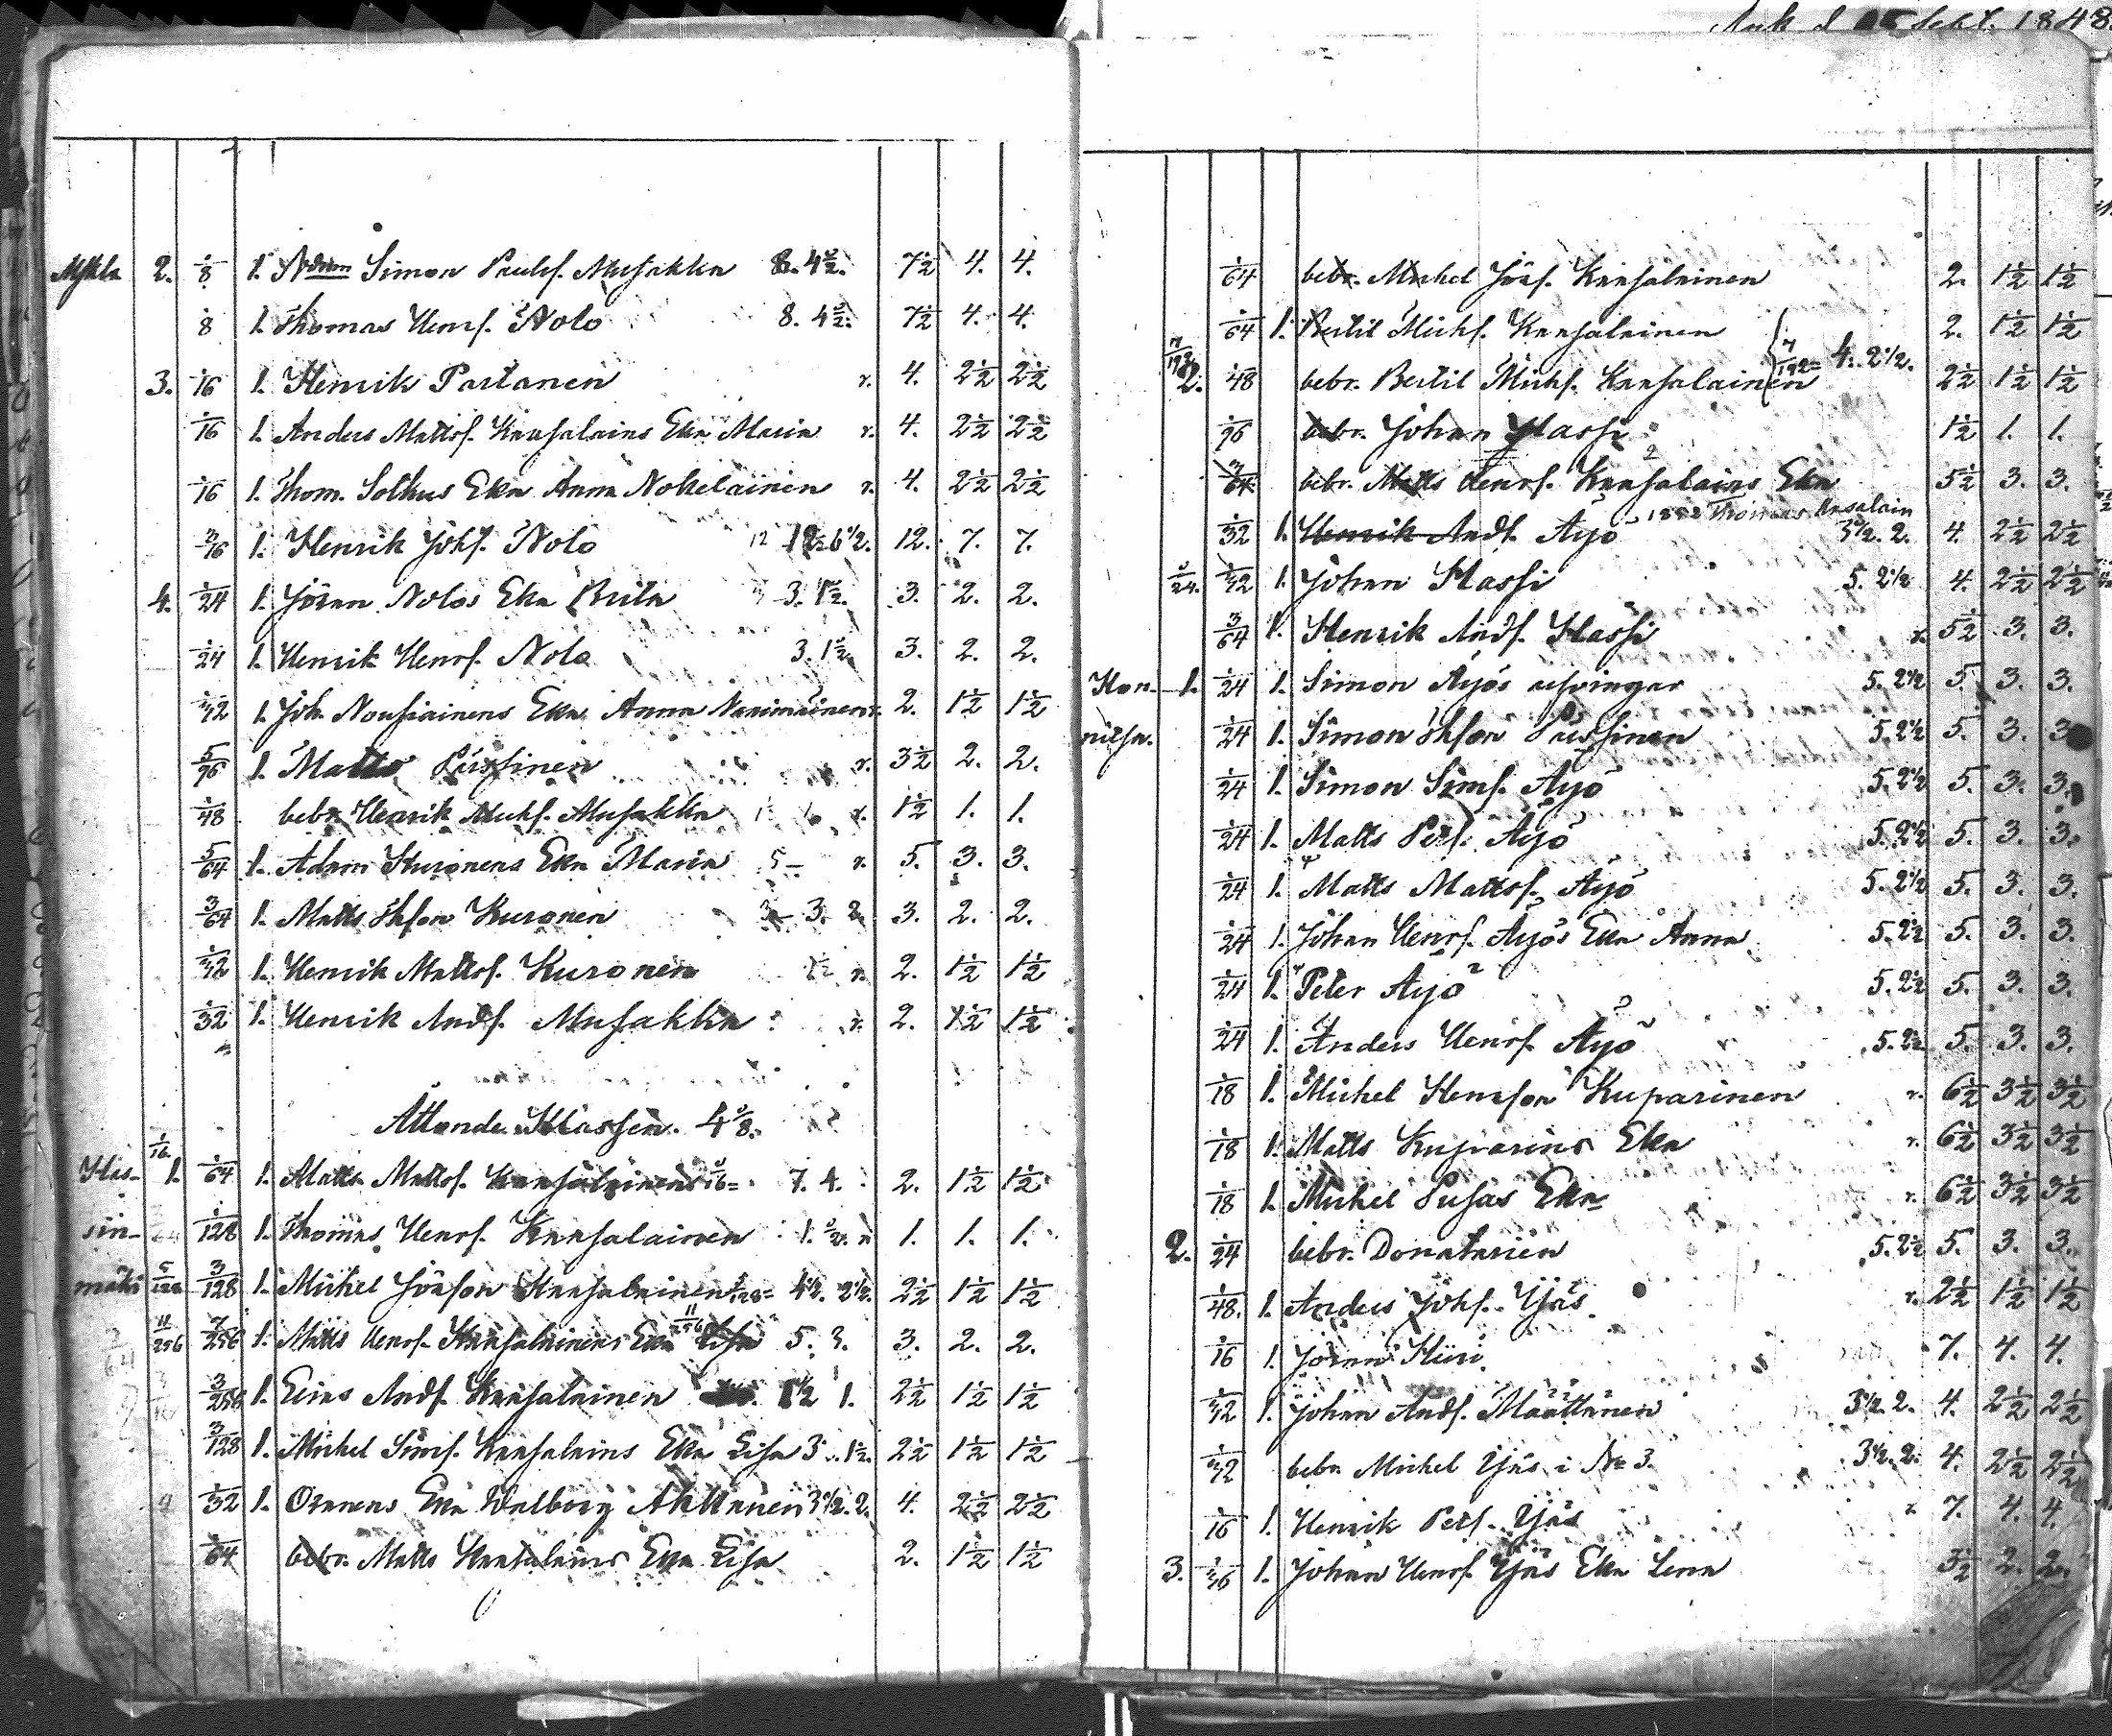 2. 1/8 1. Simon Paulss. Musakka 8. 4 1/2. 7 1/2 4. 4.
1/8 1. Thomas Henrs. Nolo 8. 4 1/2. 7 1/2 4. 4.
3. 1/16 1. Henrik Partanen r. 4. 2 1/2 2 1/2
1/16 1. Anders Mattss. Kansalains Eka Maria r. 4. 2 1/2 2 1/2
1/16 1. Thom. Eka Anna Nokelainen r. 4. 2 1/2 2 1/2
3/16 1. Henrik Johs. Nolo 12 12. 6 1/2. 12. 7. 7.
4. 1/24 1. Jöran Nolos Eka Brita 3. 1 1/2. 3. 2. 2.
1/24 1. Henrik Henrs. Nolo 3. 1 1/2. 3. 2. 2.
1. Joh. Nousiainens Eka Anna r. 2. 1 1/2 1 1/2
5/96 1. Matts Püssinen r. 3 1/2 2. 2.
1/48 bebr. Henrik Michs. Musakka r. 1 1/2 1. 1.
5/64 1. Adam Kuronens Eka Maria 5 r. 5. 3. 3.
3/64 1. Matts Kuronen 3. 2. 3. 2. 2.
1. Henrik Mattss. Kuronen r. 2. 1 1/2 1 1/2
1/32 1. Henrik Ands. Musakka r. 2. 1 1/2 1 1/2
Åttonde Klassen. 4 1/8.
1/16
His- 1. 1/64 1. Matts Mattss. Kansalainens 1/16 = 7. 4. 2. 1 1/2 1 1/2
sin- 1/128 1. Thomas Henrs. Kansalainen 1. 1/2. r. 1. 1. 1.
mäki 5/128 3/128 1. Michel Jörsson Kansalainen 4 1/2. 2 1/2. 2 1/2 1 1/2 1 1/2
11/256 7/256 1. Matts Henrs. Kansalainens Eka Lisa 11/256 5. 3. 3. 2. 2.
3/256 1. Ands. Kansalainen 1 1/2 1. 2 1/2 1 1/2 1 1/2
3/128 1. Michel Sims. Kansalains Eka Lisa 3. 1 1/2. 2 1/2 1 1/2 1 1/2
1/32 1. Eka Walborg Ahttanen 3 1/2. 2. 4. 2 1/2 2 1/2
1/64 bebr. Matts Kansalains Eka Lisa 2. 1 1/2 1 1/2
Sept. 1848.
1/64 bebr. Michel Jörs. Kansalainen 2. 1 1/2 1 1/2
1/64 1. Bertil Michs. Kansalainen 2. 1 1/2 1 1/2
7/192 2. 1/48 bebr. Bertil Michs. Kansalainen 7/192 = 4. 2 1/2. 2 1/2 1 1/2 1 1/2
1/96 bebr. Johan Hassi 1 1/2 1. 1.
3/64 bebr. Matts Henrs. Kansalains Eka 5 1/2 3. 3.
Thomas Ansalain
1/32 1. Henrik Ands. Äyjö 3 1/2. 2. 4. 2 1/2 2 1/2
1/24 1. Johan Hassi 5. 2 1/2 4. 2 1/2 2 1/2
3/64 1. Henrik Ands. Hassi r. 5 1/2 3. 3.
Kon- 1. 1/24 1. Simon Äyjös arfvingar 5. 2 1/2 5. 3. 3.
nitsa. 1/24 1. Simon Püssinen 5. 2 1/2 5. 3. 3
1/24 1. Simon Sims. Äyjö 5. 2 1/2 5. 3. 3.
1/24 1. Matts Pets. Äyjö 5. 2 1/2 5. 3. 3.
1/24 1. Matts Mattss. Äyjö 5. 2 1/2 5. 3. 3.
1/24 1. Johan Henrs. Äyjös Eka Anna 5. 2 1/2 5. 3. 3.
1/24 1. Peter Äyjö 5. 2 1/2 5. 3. 3.
1/24 1. Anders Henrs. Äyjö 5. 2 1/2 5. 3. 3.
1/18 1. Michel Henrsson Kuparinen r. 6 1/2 3 1/2 3 1/2
1/18 1. Matts Kuparins Eka r. 6 1/2 3 1/2 3 1/2
1/18 1. Michel Susas Eka r. 6 1/2 3 1/2 3 1/2
2. 1/24 bebr. Donatarien 5. 2 1/2 5. 3. 3.
1/48. 1. Anders Johs. Yjäs r. 2 1/2 1 1/2 1 1/2
1/16 1. Jöran Hiiri 7. 4. 4.
1. Johan Ands. Määttänen 3 1/2. 2. 4. 2 1/2 2 1/2
bebr. Michel Yjäs i No 3. 3 1/2. 2. 4. 2 1/2 2 1/2
1/16 1. Henrik Pets. Yjäs r. 7. 4. 4.
3. 1. Johan Henrs. Yjäs Eka Lena 3 1/2 2. 2.